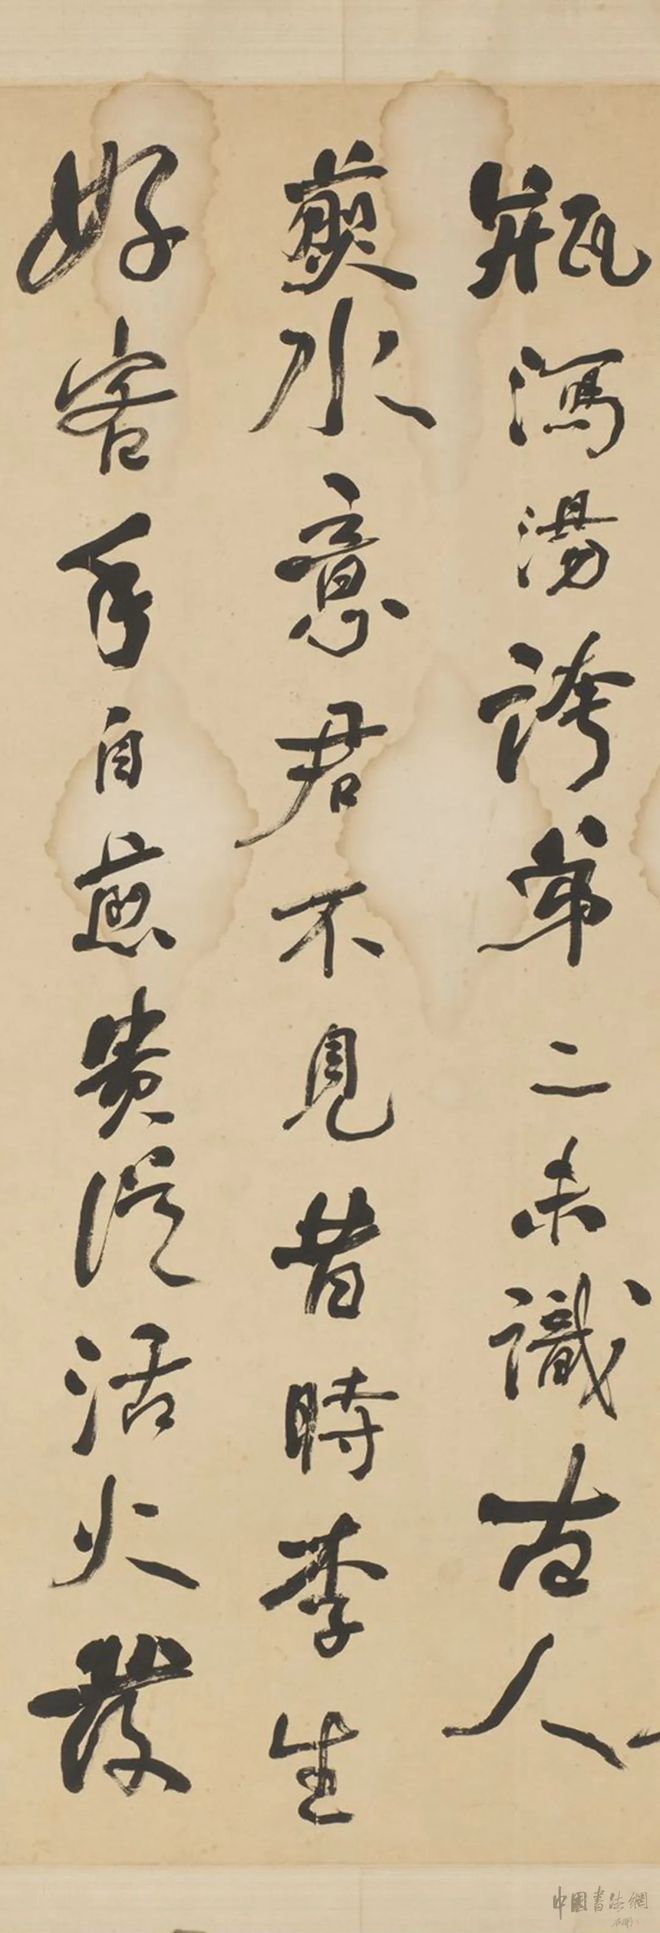 瓶瀉湯誇第二未識古人
煎水意君不見昔時李生
好客手自煎貴從活火發
中國書法網